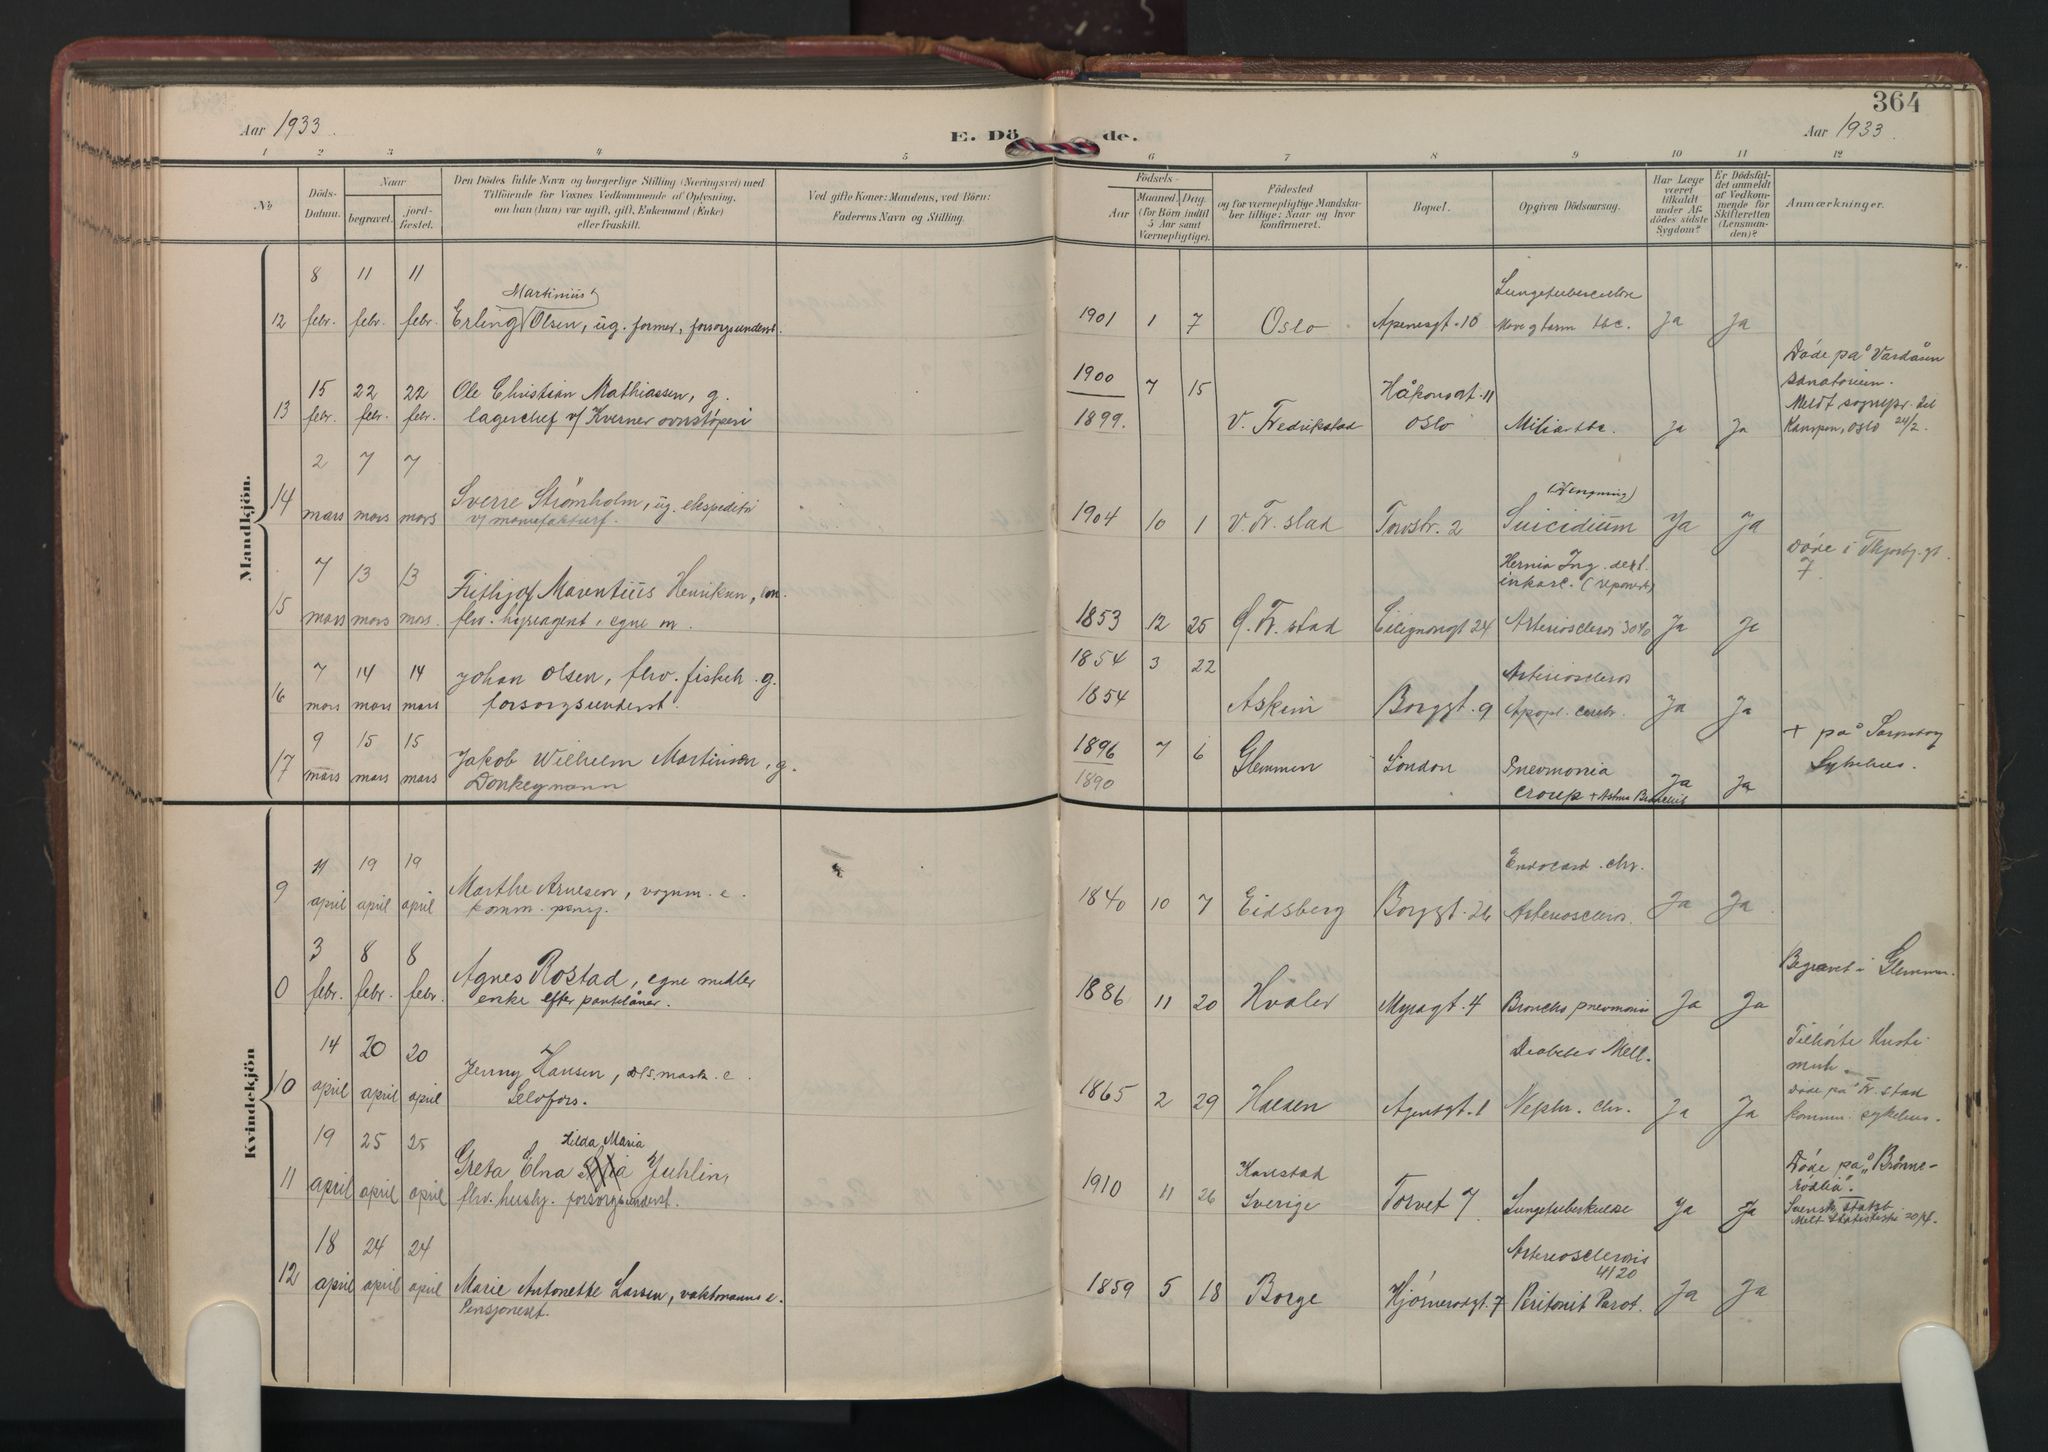 364
Aar 1933.
E. Dö de.
Aar 1933.
1 2 3 4 5 6 7 8 9 10 11 12
No
Döds-Datum.
Naar
begravet.
jord-fæstet.
Den Dödes fulde Navn og borgerlige Stilling (Næringsvei) med
Tilföiende for Voxnes Vedkommende af Oplysning,
om han (hun) var ugift, gift, Enkemand (Enke)
eller fraskilt.
Ved gifte Koner: Mandens, ved Börn:
Faderens Navn og Stilling.
Födsels-
Aar
Maaned. Dag.
(for Börn indtil
5 Aar samt
Værnepligtige).
Födested
og for værnepligtige Mandska-
ber tillige: Naar og hvor
konfirmeret.
Bopæl.
Opgiven Dödsaarsag.
Har Læge
været
tilkaldt
under Af-
dödes sidste
Sygdom?
Er Dödsfal-
det anmeldt
af Vedkom-
mende for
Skifteretten
(Lensman-
den)?
Anmærkninger.
Mandkjön.
12 8 febr. 11 febr. 11 febr.
Martinius
Erling Olsen, ug. former, forsorgsunderst.
1901 1 7 Oslo Apenesgt. 10
Lungetuberculose
tbc. Ja Ja
13 15 febr. 22 febr. 22 febr.
Ole Christian Mathiassen, g.
lagerchef v/ Kverner ovnstøperi
1900 7 15
1899.
V. Fredrikstad
Håkonsgt. 11
Oslo
Miliartbc. Ja Ja
Døde på Vardåsen
sanatorium.
Meldt sognepr. til
Kampen, Oslo 24/2.
14 2 mars 7 mars 7 mars
Sverre Strømholm, ug. ekspeditør
v/ manufakturf.
1904 10 1 V. Fr. stad Torvstr. 2
(Hengning)
Suicidium Ja Ja
15 7 mars 13 mars 13 mars.
Frithjof Marentius Henriksen,
flrv. hyreagent, egne m.
1853 12 25 G. Fr. stad
Hernia Ing. dext.
inkarc. (reponert)
Arterioscleros Ja Ja
Døde i
7
16 7 mars 14 mars 14 mars
Johan Olsen, flrv. fiskeh. g.
forsorgsunderst.
1854 3 22
1854
Askim Borggt. 9
Arterioscleros
Apopl. cerebr. Ja Ja
17 9 mars 15 mars 15 mars
Jakob Wilhelm Martinsen, g.
Donkeymann
1896 7 6
1890
Glemmen London
Pnevmonia
croup + Astma Bronchit Ja Ja
+ på Sarpsborg
Sykehus.
Kvindekjön
9 11 april 19 april 19 april
Marthe Arnesen, vognm. e.
komm. pensj.
1840 10 7 Eidsberg Borggt. 26
Endocard. chr.
Arterioscleros. Ja Ja
0 3 febr. 8 febr. 8 febr.
Agnes Rostad, egne midler
enke efter pantelåner.
1886 11 20 Hvaler Myragt. 4
Broncho pnevmoni Ja Ja
Begravet i Glemmen.
10 14 april 20 april 20 april
Jenny Hansen, mask. e.
Selofors.
1865 2 29 Halden Agentgt. 1
Diabetes Mell.
Nephr. chr. Ja Ja
Tilhørte
Døde på Fr. stad
kommun. sykehus.
11 19 april 25 april 25 april
Lilda Maria
Greta Elna Juhlin,
flrv. hushj. forsorgsunderst.
1910 11 26
Karlstad
Sverige
Torvet 7
Lungetuberkulose Ja Ja
Døde på "Brønne-
rødlia".
Svensk statsb.
12 18 april 24 april 24 april
Marie Antonette Larsen, vaktmanns e.
Pensjonest.
1859 5 18 Borge Hjørnerødgt. 7
Arteriosclerosis
4120
Peritonit Parot. Ja Ja